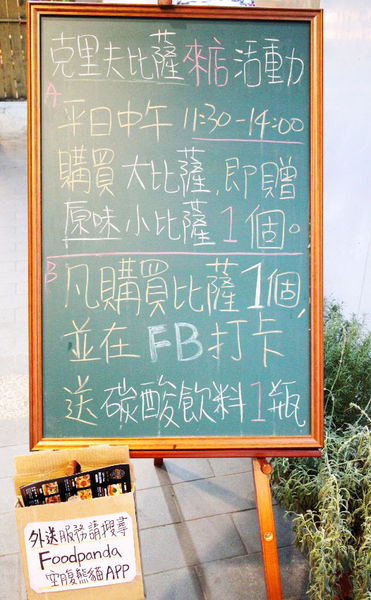 克里夫比薩來店活動
A
平日中午 11:30-14:00
購買大比薩,即贈
原味小比薩1個。
B
凡購買比薩1個,
並在FB打卡
送碳酸飲料1瓶
外送服務請搜尋
Foodpanda
空腹熊貓APP